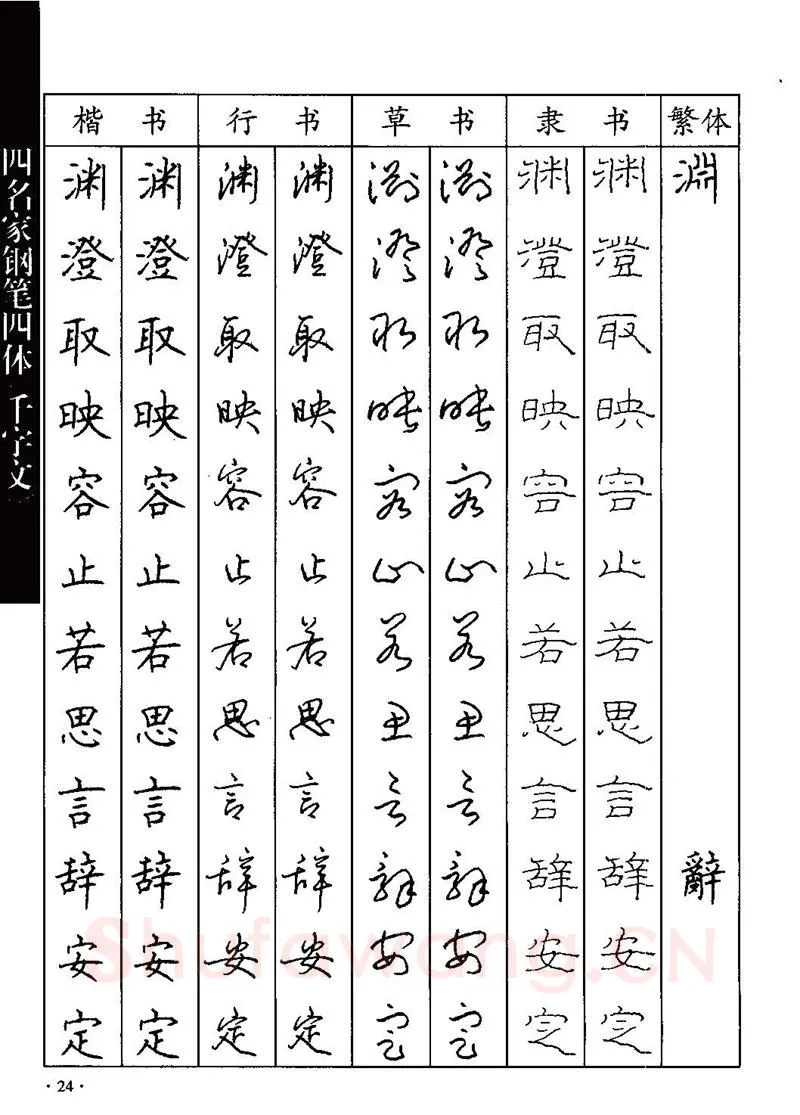 四名家钢笔四体 千字文
楷书 行书 草书 隶书 繁体
渊澄取映容止若思言辞安定
渊澄取映容止若思言辞安定
渊澄取映容止若思言辞安定
渊澄取映容止若思言辞安定
渊澄取映容止若思言辞安定
渊澄取映容止若思言辞安定
渊澄取映容止若思言辞安定
渊澄取映容止若思言辞安定
淵 辭
Shufawang.CN
·24·